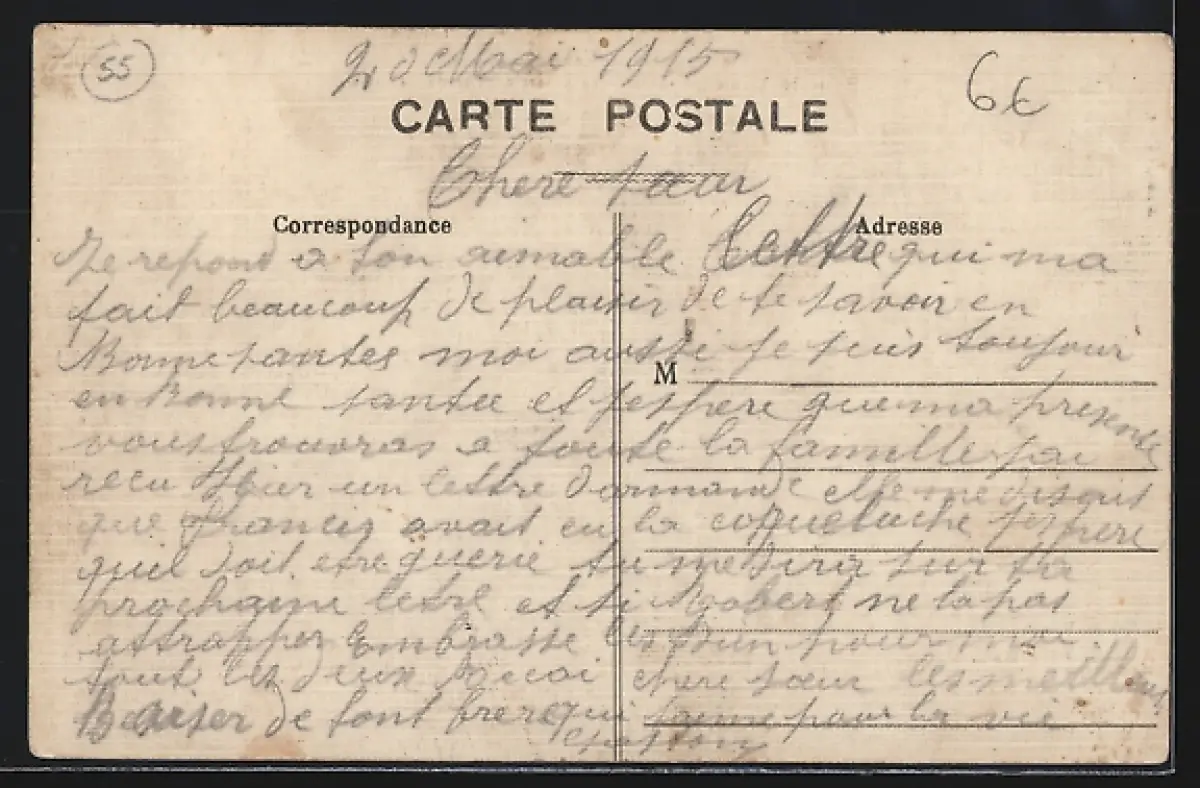 55
20 Mai 1915
6€
CARTE POSTALE
Chere sœur
Correspondance
Adresse
Je repond a ton aimable lettre qui ma
fait beaucoup de plaisir de te savoir en
Bonne santee moi aussi je suis toujour
M
en Bonne santee et jespere que ma presente
vous trouvras a toute la famille jai
recu Hier un lettre darmande elle me disait
que Francis avait eu la coqueluche jespere
quil doit etre guerie tu me diras sur ta
prochaine letre et si Robert ne la pas
attrapper Embrasse les Bien pour moi
tout les deux Recoi chere sœur les meilleur
Baiser de tont frere qui taime pour la vie
Gaston